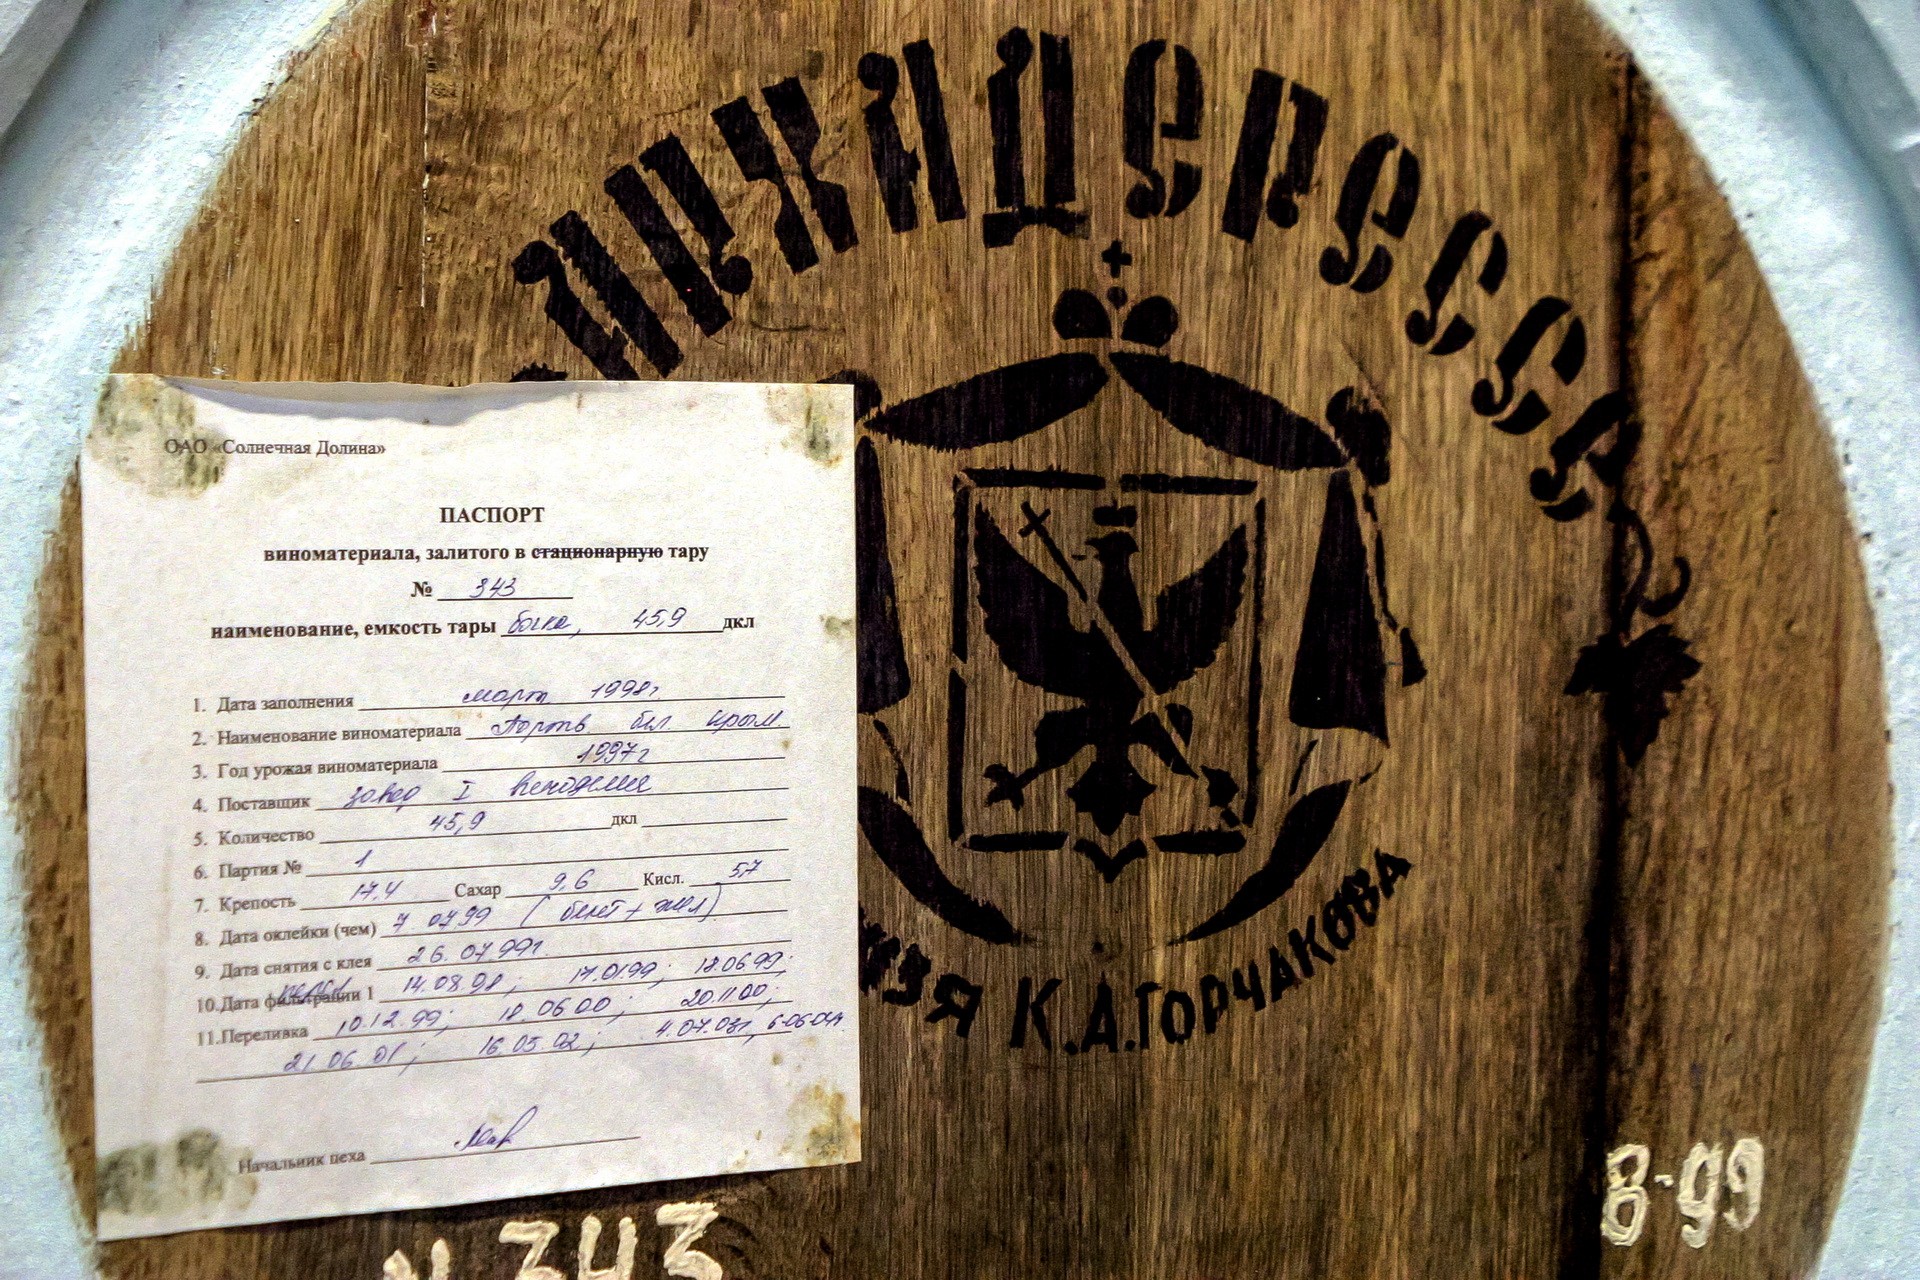 АРХАДЕРЕССЕ
ОАО «Солнечная Долина»
ПАСПОРТ
виноматериала, залитого в стационарную тару
№ 343
наименование, емкость тары бочка, 45,9 дкл
1. Дата заполнения март 1998г
2. Наименование виноматериала Портв. бел. крым.
3. Год урожая виноматериала 1997г
4. Поставщик завод I виноделия
5. Количество 45,9 дкл
6. Партия № 1
7. Крепость 17.4 Сахар 9,6 Кисл. 5,7
8. Дата оклейки (чем) 7.07.99 (бент + жел)
9. Дата снятия с клея 26.07.99г.
10. Дата фильтрации 1 14.08.98; 17.01.99; 18.06.99;
11. Переливка 10.12.99; 18.06.00; 20.11.00;
21.06.01; 16.05.02; 4.07.03г, 6.06.04г
Начальник цеха
КНЯЗЯ К.А.ГОРЧАКОВА
N 343
8-99